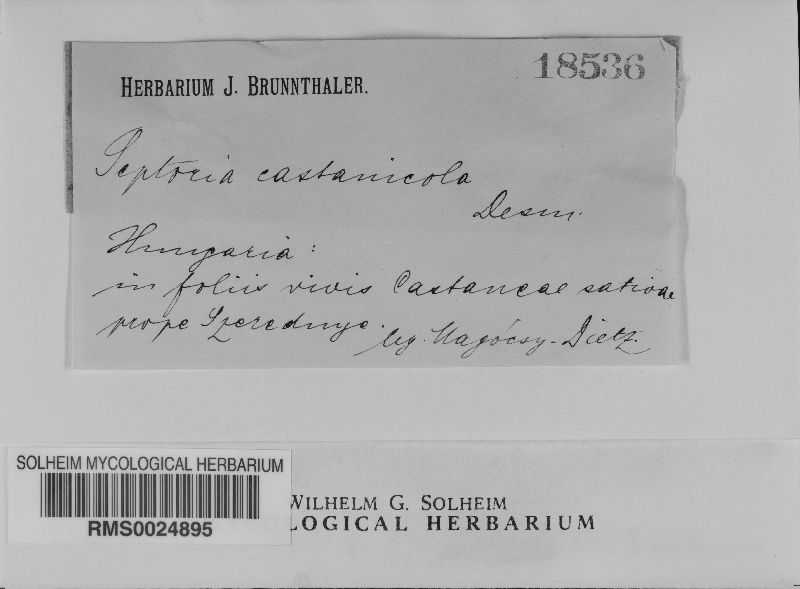 18536
HERBARIUM J. BRUNNTHALER.
Septoria castanicola
Desm.
Hungaria:
in foliis vivis Castaneae sativae
prope Szerednye.
leg. Magócsy-Dietz.
SOLHEIM MYCOLOGICAL HERBARIUM
RMS0024895
WILHELM G. SOLHEIM
LOGICAL HERBARIUM